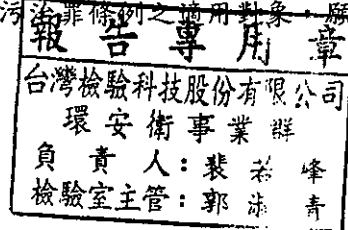 污治罪條例之適用對象，願
報告專用章
台灣檢驗科技股份有限公司
環安衛事業群
負責人：裴若峰
檢驗室主管：郭淑青